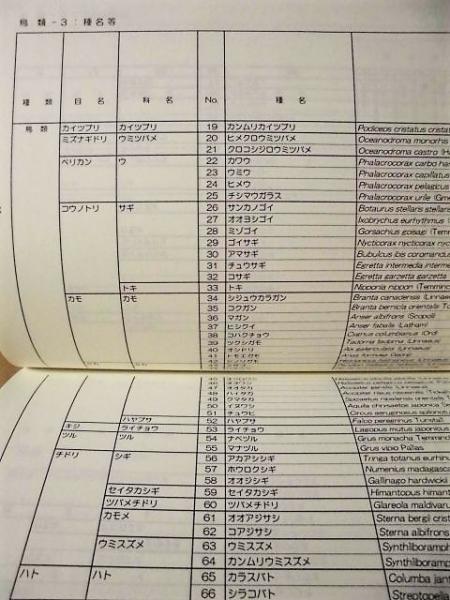 鳥 類 － 3 ： 種名等
種 類 目 名 科 名 No. 種 名
鳥類 カイツブリ カイツブリ 19 カンムリカイツブリ Podiceps cristatus crista
ミズナギドリ ウミツバメ 20 ヒメクロウミツバメ Oceanodroma monorhis
21 クロコシジロウミツバメ Oceanodroma castro
ペリカン ウ 22 カワウ Phalacrocorax carbo
23 ウミウ Phalacrocorax capillatus
24 ヒメウ Phalacrocorax pelagicus
25 チシマウガラス Phalacrocorax urile (Gme
コウノトリ サギ 26 サンカノゴイ Botaurus stellaris stellaris
27 オオヨシゴイ Ixobrychus eurhythmus
28 ミゾゴイ Gorsachius goisagi (Temm
29 ゴイサギ Nycticorax nycticorax
30 アマサギ Bubulcus ibis coromandus
31 チュウサギ Egretta intermedia interme
32 コサギ Egretta garzetta garzetta
トキ 33 トキ Nipponia nippon (Temminc
カモ カモ 34 シジュウカラガン Branta canadensis (Linnae
35 コクガン Branta bernicla orientalis
36 マガン Anser albifrons (Scopoli)
37 ヒシクイ Anser fabalis (Latham)
38 コハクチョウ Cygnus columbianus (Ord)
39 ツクシガモ Tadorna tadorna (Linnaeus)
40 オシドリ Aix galericulata (Linnaeus)
41 トモエガモ Anas formosa Georgi
47 オオタカ
48 ハイタカ
49 クマタカ Spizaetus nipalensis orientalis
50 イヌワシ Aquila chrysaetos japonica
51 チュウヒ Circus aeruginosus
ハヤブサ 52 ハヤブサ Falco peregrinus Tunstall
キジ ライチョウ 53 ライチョウ Lagopus mutus japonicus
ツル ツル 54 ナベヅル Grus monacha Temminc
55 マナヅル Grus vipio Pallas
チドリ シギ 56 アカアシシギ Tringa totanus eurhinu
57 ホウロクシギ Numenius madagasca
58 オオジシギ Gallinago hardwicki
セイタカシギ 59 セイタカシギ Himantopus himant
ツバメチドリ 60 ツバメチドリ Glareola maldivaru
カモメ 61 オオアジサシ Sterna bergi crist
62 コアジサシ Sterna albifrons
ウミスズメ 63 ウミスズメ Synthliboramph
64 カンムリウミスズメ Synthliboramph
ハト ハト 65 カラスバト Columba jant
66 シラコバト Streptopelia